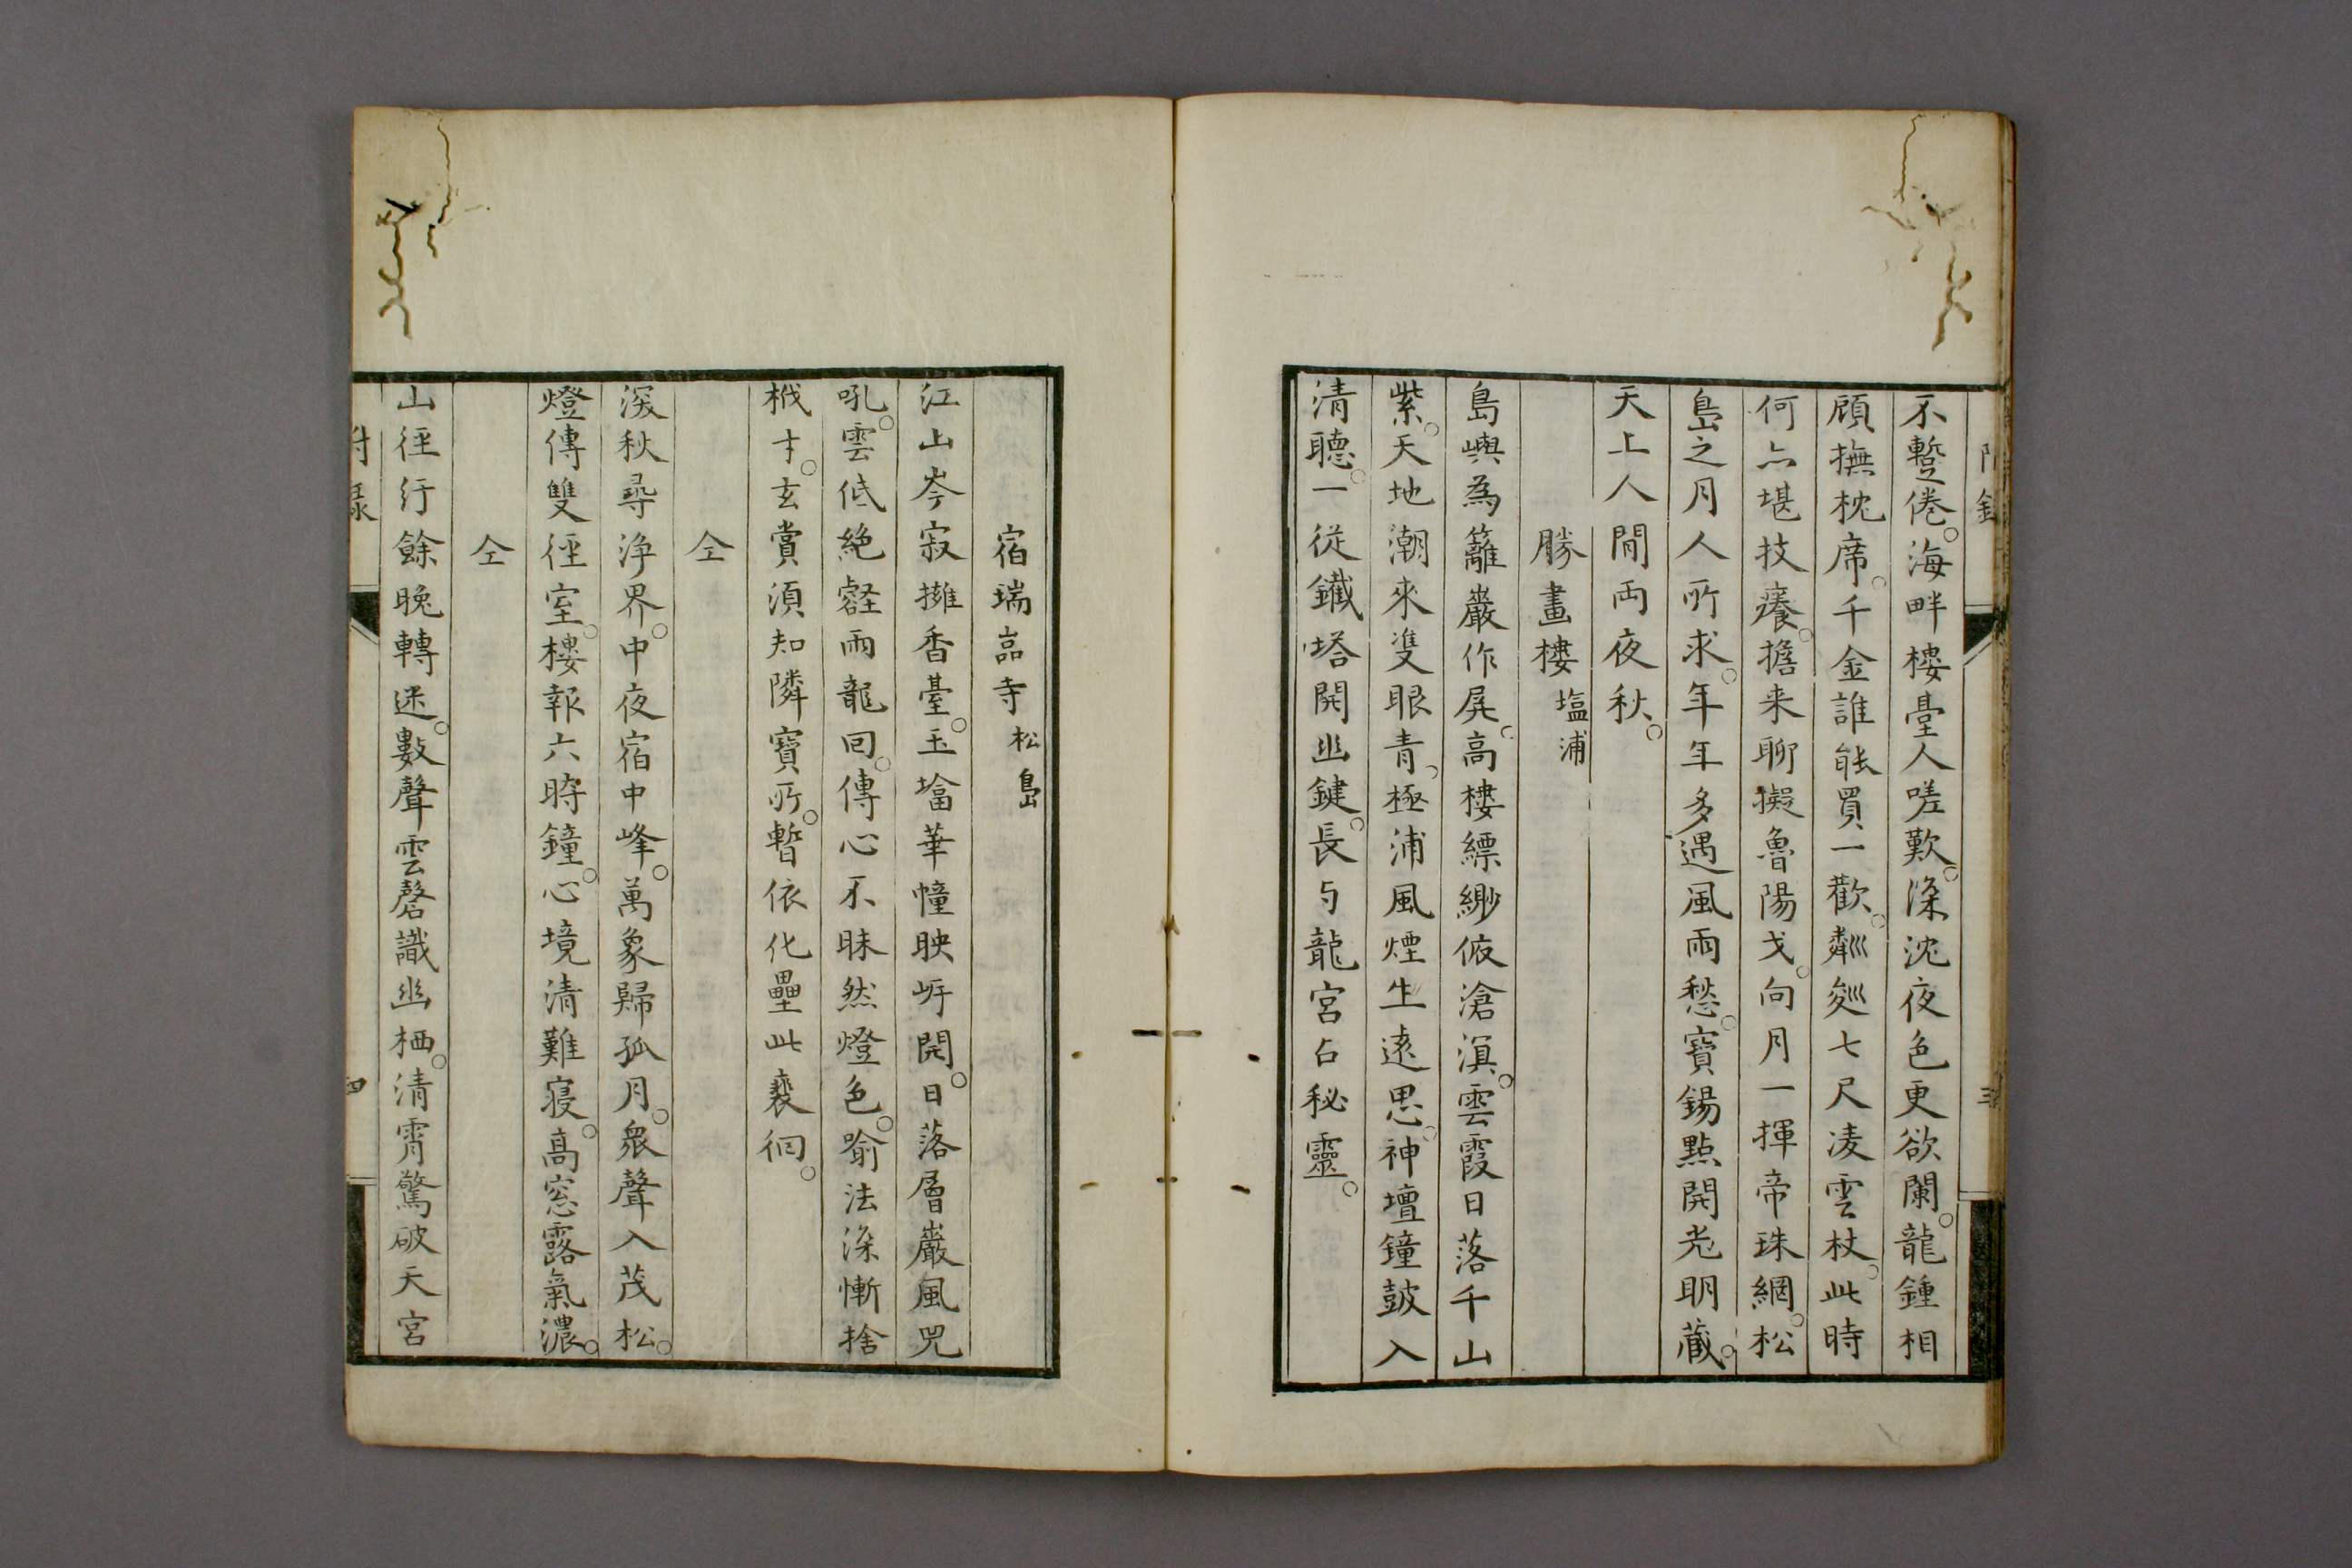 不蹔倦。海畔樓臺人嗟歎。深沈夜色更欲闌。龍鍾相
顧撫枕席。千金誰能買一歡。粼巡七尺凌雲杖。此時
何亦堪技癢。擔来聊擬魯陽戈。向月一揮帝珠網。松
島之月人所求。年年多遇風雨愁。寶錫點開光明藏。
天上人間両夜秋。
勝畫樓 塩浦
島嶼為籬巖作屏。高樓縹緲俯滄溟。雲霞日落千山
紫。天地潮来雙眼青。極浦風煙生遠思。神壇鐘鼓入
清聽。一従鐵塔開幽鍵。長与龍宮占秘靈。
宿瑞嵓寺 松島
江上岑寂擁香臺。玉塔華幢映岍開。日落層巖風咒
吼。雲低絶壑雨龍回。傳心不昧然燈色。喻法深慚捨
栰才。玄賞須知隣寶所。暫依化壘此裵徊。
仝
深秋尋浄界。中夜宿中峰。萬象歸孤月。衆聲入茂松。
燈傳雙徑室。樓報六時鐘。心境清難寝。高窓露氣濃。
仝
山徑行餘晚轉迷。數聲雲磬識幽栖。清霄驚破天宮
附録
四